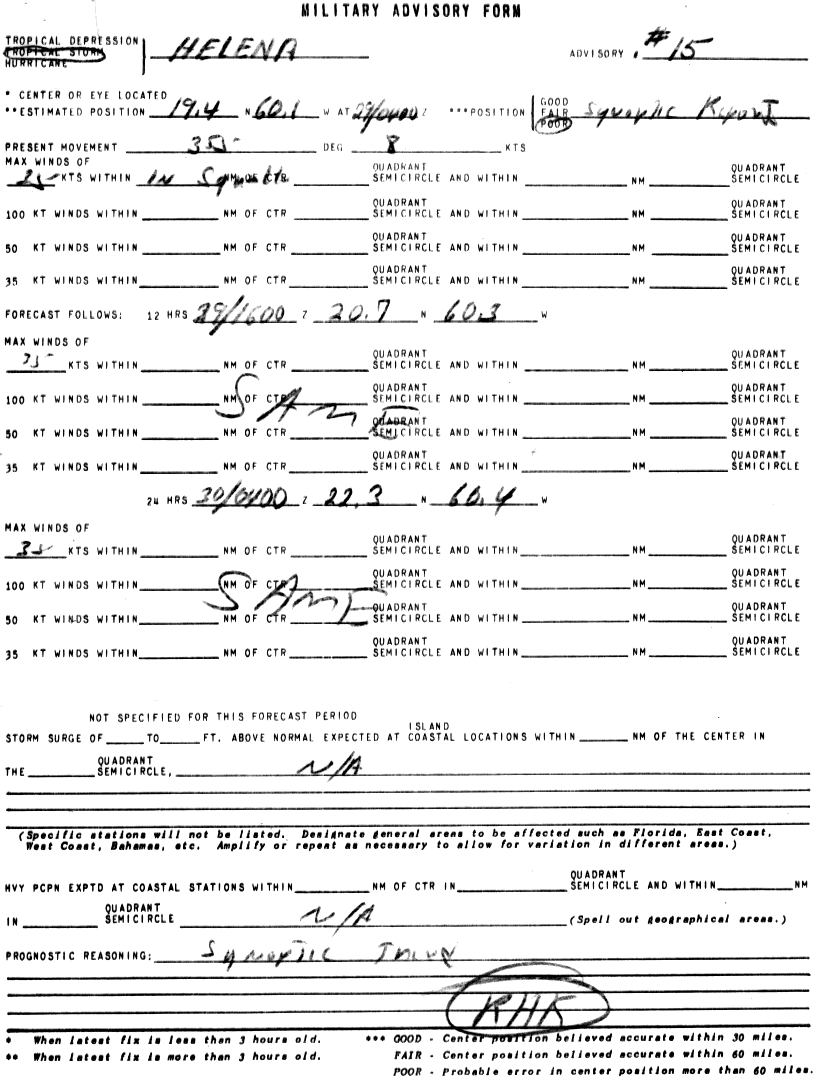 MILITARY ADVISORY FORM
TROPICAL DEPRESSION
TROPICAL STORM HELENA ADVISORY #15
HURRICANE
* CENTER OR EYE LOCATED
**ESTIMATED POSITION 19.4 N 60.1 W AT 29/0400 Z ***POSITION GOOD FAIR POOR Synoptic Report
PRESENT MOVEMENT 355 DEG 8 KTS
MAX WINDS OF
25 KTS WITHIN IN Squalls NM OF CTR QUADRANT SEMICIRCLE AND WITHIN NM QUADRANT SEMICIRCLE
100 KT WINDS WITHIN NM OF CTR QUADRANT SEMICIRCLE AND WITHIN NM QUADRANT SEMICIRCLE
50 KT WINDS WITHIN NM OF CTR QUADRANT SEMICIRCLE AND WITHIN NM QUADRANT SEMICIRCLE
35 KT WINDS WITHIN NM OF CTR QUADRANT SEMICIRCLE AND WITHIN NM QUADRANT SEMICIRCLE
FORECAST FOLLOWS: 12 HRS 29/1600 Z 20.7 N 60.3 W
MAX WINDS OF
KTS WITHIN NM OF CTR QUADRANT SEMICIRCLE AND WITHIN NM QUADRANT SEMICIRCLE
100 KT WINDS WITHIN NM OF CTR QUADRANT SEMICIRCLE AND WITHIN NM QUADRANT SEMICIRCLE
SAME
50 KT WINDS WITHIN NM OF CTR QUADRANT SEMICIRCLE AND WITHIN NM QUADRANT SEMICIRCLE
35 KT WINDS WITHIN NM OF CTR QUADRANT SEMICIRCLE AND WITHIN NM QUADRANT SEMICIRCLE
24 HRS 30/0400 Z 22.3 N 60.4 W
MAX WINDS OF
35 KTS WITHIN NM OF CTR QUADRANT SEMICIRCLE AND WITHIN NM QUADRANT SEMICIRCLE
100 KT WINDS WITHIN NM OF CTR QUADRANT SEMICIRCLE AND WITHIN NM QUADRANT SEMICIRCLE
SAME
50 KT WINDS WITHIN NM OF CTR QUADRANT SEMICIRCLE AND WITHIN NM QUADRANT SEMICIRCLE
35 KT WINDS WITHIN NM OF CTR QUADRANT SEMICIRCLE AND WITHIN NM QUADRANT SEMICIRCLE
NOT SPECIFIED FOR THIS FORECAST PERIOD
STORM SURGE OF TO FT. ABOVE NORMAL EXPECTED AT ISLAND COASTAL LOCATIONS WITHIN NM OF THE CENTER IN
THE QUADRANT SEMICIRCLE, N/A
(Specific stations will not be listed. Designate general areas to be affected such as Florida, East Coast,
West Coast, Bahamas, etc. Amplify or repeat as necessary to allow for variation in different areas.)
HVY PCPN EXPTD AT COASTAL STATIONS WITHIN NM OF CTR IN QUADRANT SEMICIRCLE AND WITHIN NM
IN QUADRANT SEMICIRCLE N/A (Spell out geographical areas.)
PROGNOSTIC REASONING: Synoptic
RHK
* When latest fix is less than 3 hours old. *** GOOD - Center position believed accurate within 30 miles.
** When latest fix is more than 3 hours old. FAIR - Center position believed accurate within 60 miles.
POOR - Probable error in center position more than 60 miles.